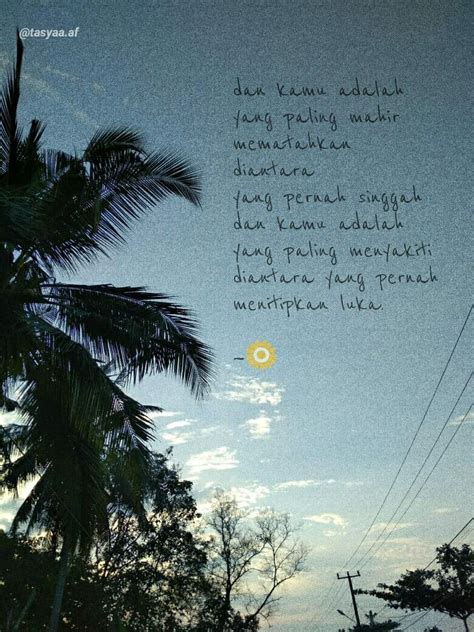 @tasyaa.af
dan kamu adalah
yang paling mahir
mematahkan
diantara
yang pernah singgah
dan kamu adalah
yang paling menyakiti
diantara yang pernah
menitipkan luka.